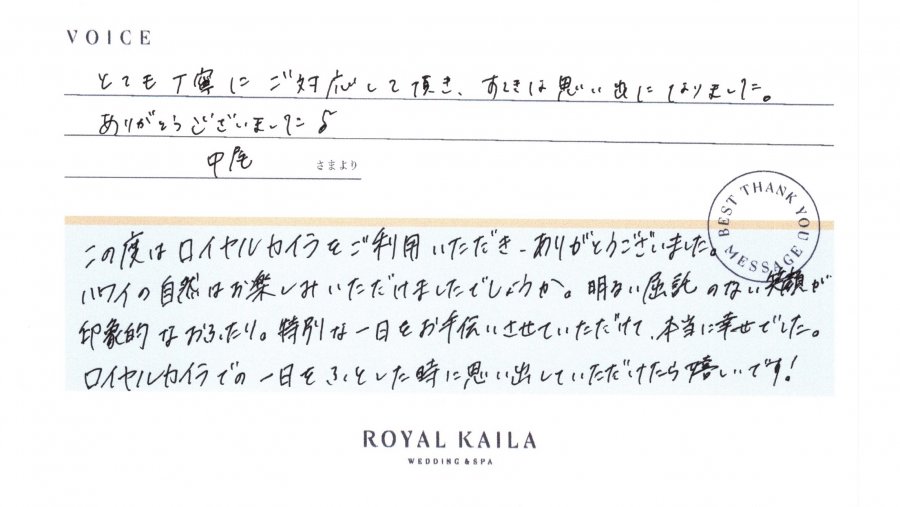 VOICE
とても丁寧にご対応して頂き、すてきな思い出になりました。
ありがとうございました♪
中尾 さまより
BEST THANK YOU MESSAGE
この度はロイヤルカイラをご利用いただき、ありがとうございました。
ハワイの自然はお楽しみいただけましたでしょうか。明るい屈託のない笑顔が
印象的なおふたり。特別な一日をお手伝いさせていただけて、本当に幸せでした。
ロイヤルカイラでの一日をふとした時に思い出していただけたら嬉しいです!
ROYAL KAILA
WEDDING & SPA